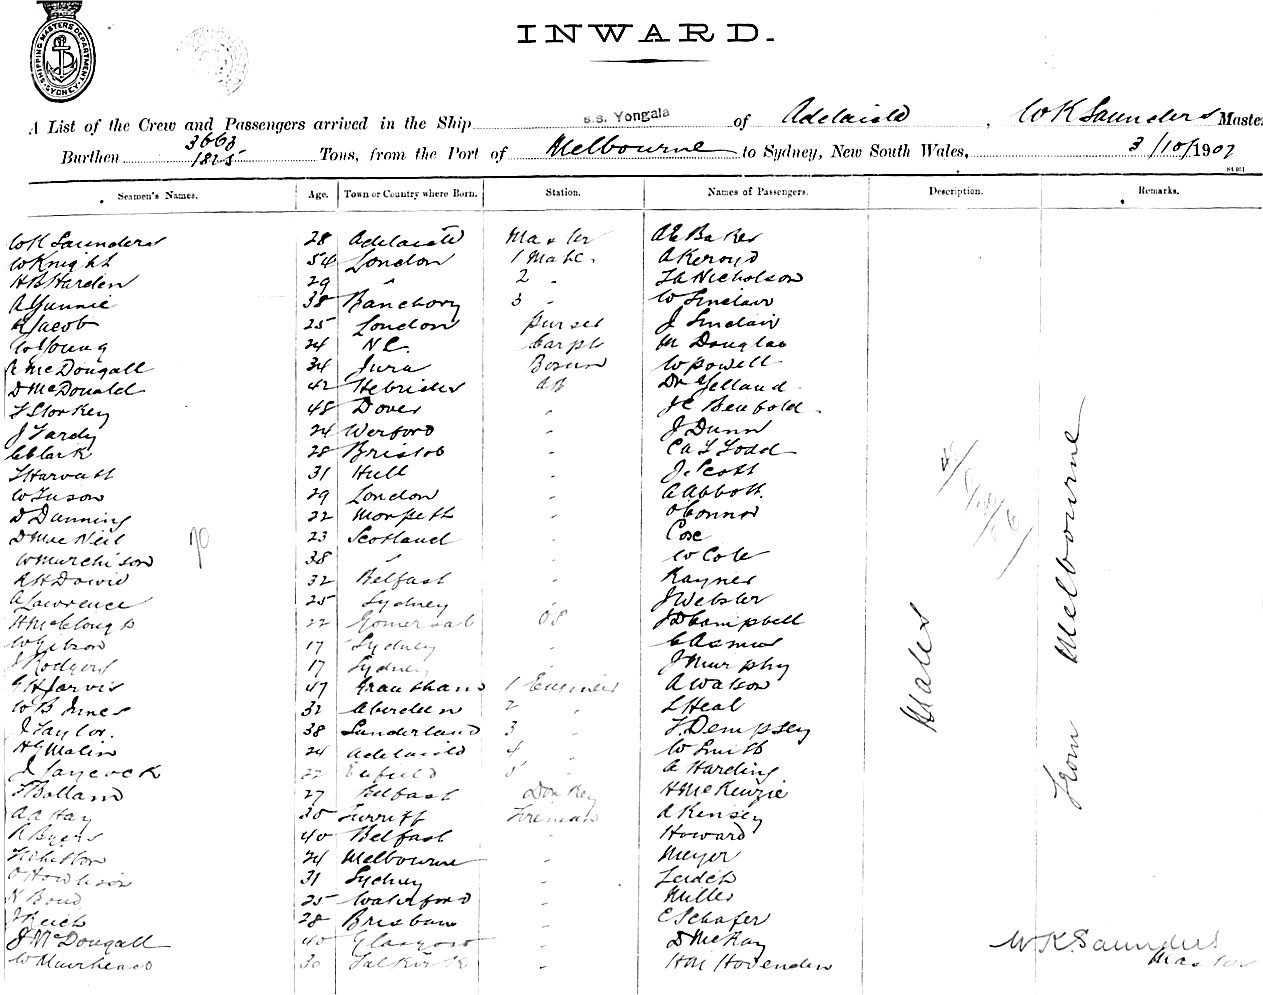 SHIPPING MASTERS DEPARTMENT SYDNEY
INWARD.
A List of the Crew and Passengers arrived in the Ship s.s. Yongala of Adelaide, W K Saunders Master
Burthen 3663 1825 Tons, from the Port of Melbourne to Sydney, New South Wales, 3/10/1907
Seamen's Names. Age. Town or Country where Born. Station. Names of Passengers. Description. Remarks.
W K Saunders 28 Adelaide Master A E Baker
W Knight 54 London 1 Mate. A Keroyd
H B Harden 29 " 2 " Nicholson
A Yunnie 38 Banchory 3 " W Sinclair
R Jacob 25 London Purser J Sinclair
W Young 24 N.C. Carpt M Douglas
McDougall 34 Jura Bosun W Powell
D McDonald 42 Hebrides AB Dr Yelland
F Storkey 48 Dover " J C Benbold
J Tardy 24 Wexford " J Dunn
C Clark 28 Bristol " Todd
Harvatt 31 Hull " J. Scott
W Tuson 29 London " A Abbott
D Dunning 22 Morpeth " O'Connor
D MacNeil 23 Scotland " Coxe
W Murchison 38 " " W Cole
R H Dowie 32 Belfast " Rayner
A Lawrence 25 Sydney " J Webster
22 Gomersal OS J D Campbell
W Gibson 17 Sydney "
J Rodgers 17 Sydney " J Murphy
G H Jarvis 47 Grantham 1 Engineer A Watson
W B Innes 32 Aberdeen 2 " L Heal
J Taylor. 38 Sunderland 3 " T. Dempsey
H G Malin 24 Adelaide 4 " W Smith
J Laycock 22 Enfield 5 " A Harding
Balland 27 Belfast Donkey H McKenzie
A A Hay 30 Turriff Fireman A Kensey
R Byers 40 Belfast " Howard
24 Melbourne " Meyer
O Howlison 31 Sydney "
N Bond 25 Waterford " Miller
J Reich 28 Brisbane " C Schafer
J McDougall 40 Glasgow " D McKay
W Muirhead 30 Falkirk " Hovenden
70
Males
From Melbourne
W K Saunders
Master